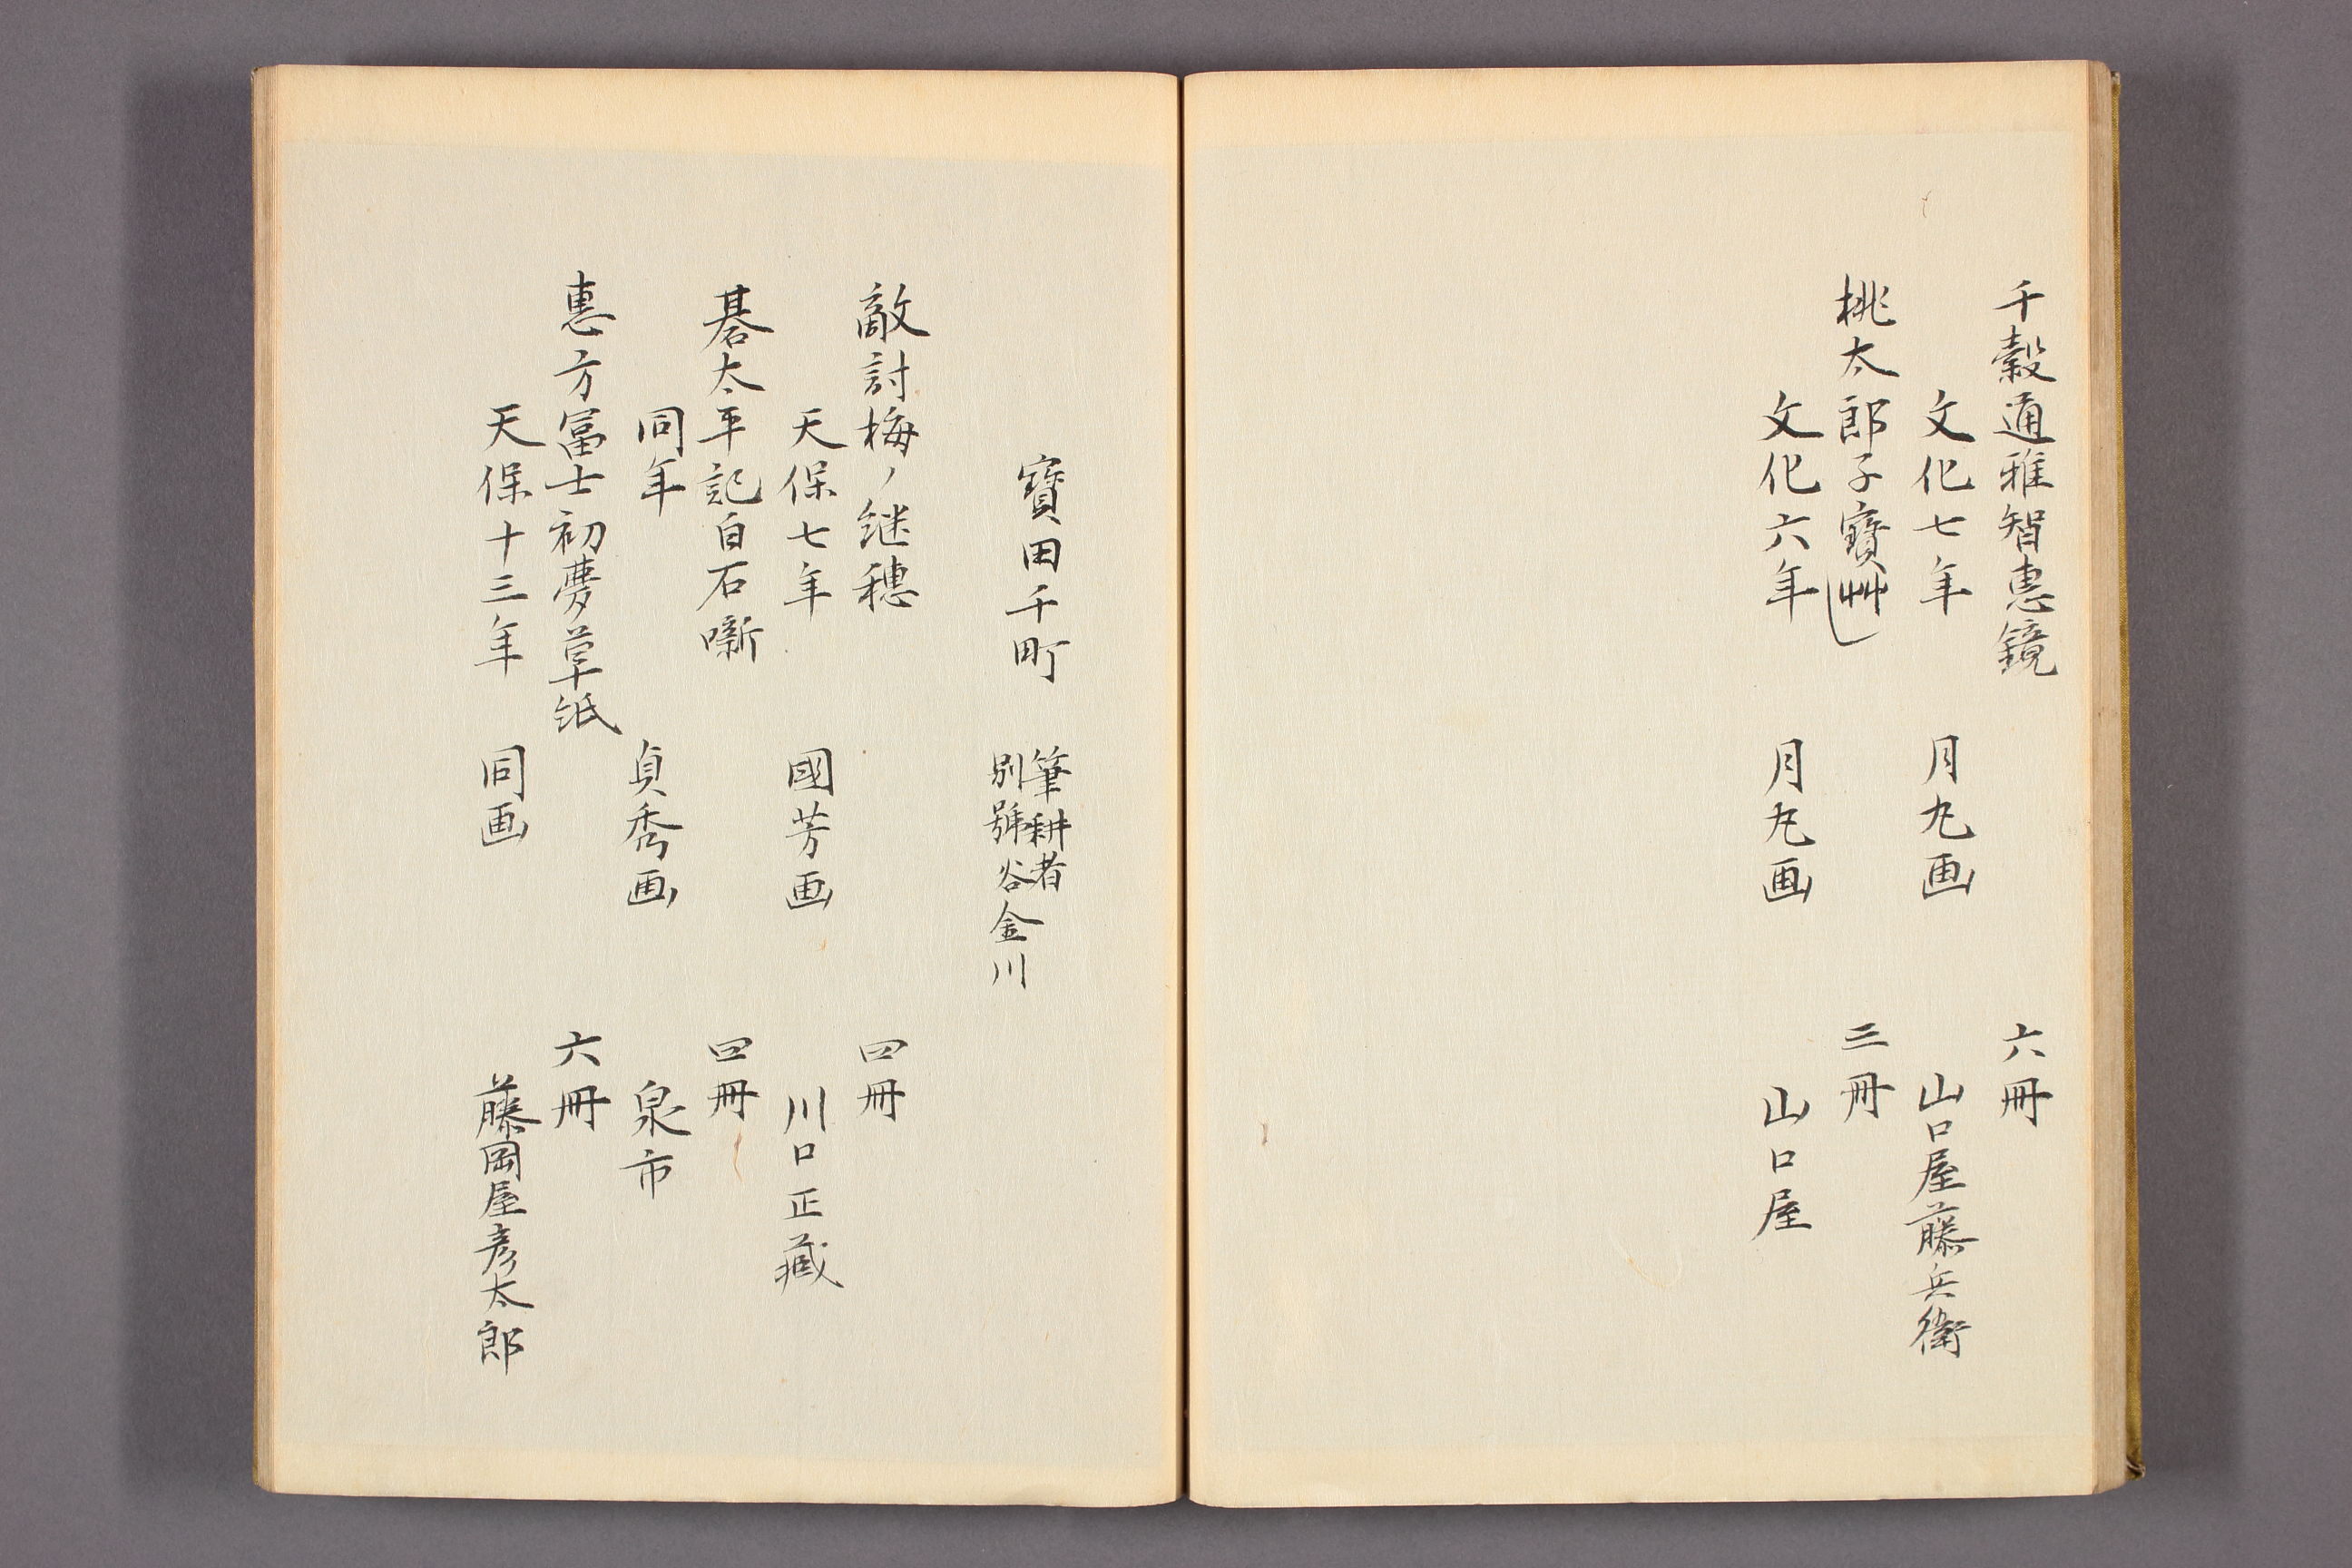 千穀通雅智惠鏡　六冊
文化七年　月丸画　山口屋藤兵衛
桃太郎子寶艸　三冊
文化六年　月丸画　山口屋
寶田千町　筆耕者
別號谷金川
敵討梅ノ継穗　四冊
天保七年　國芳画　川口正藏
碁太平記白石噺　四冊
同年　貞秀画　泉市
惠方冨士初夢草紙　六冊
天保十三年　同画　藤岡屋彦太郎